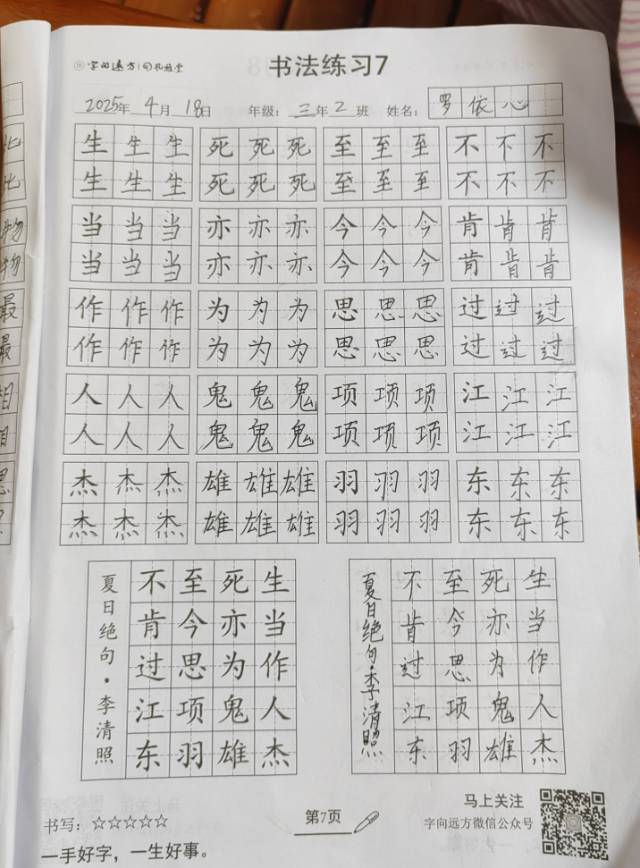 字向远方
书法练习7
2025年 4月 18日 年级: 三年2班 姓名: 罗依心
生生生 死死死 至至至 不不不
生生生 死死死 至至至 不不不
当当当 亦亦亦 今今今 肯肯肯
当当当 亦亦亦 今今今 肯肯肯
作作作 为为为 思思思 过过过
作作作 为为为 思思思 过过过
人人人 鬼鬼鬼 项项项 江江江
人人人 鬼鬼鬼 项项项 江江江
杰杰杰 雄雄雄 羽羽羽 东东东
杰杰杰 雄雄雄 羽羽羽 东东东
生当作人杰
死亦为鬼雄
至今思项羽
不肯过江东
夏日绝句·李清照
生当作人杰
死亦为鬼雄
至今思项羽
不肯过江东
夏日绝句·李清照
书写:☆☆☆☆☆
第7页
马上关注
字向远方微信公众号
一手好字，一生好事。